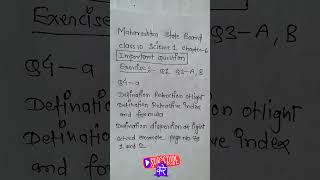 Exercise
Q3-A, B
Q4-a
Maharashtra State Board
class 10 Science 1 chapter-6
Important question
Exercise:- Q1 Q3-A, B
Q4-a
Defination Refraction of light
Defination Refractive Index
and formula
Defination dispertion of light
solved example page no 79
1 and 2
of light
Index
Defination
and
SUBSCRIBE
करे